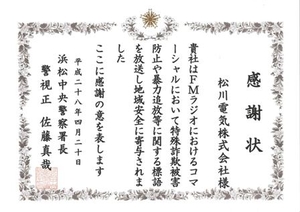 感謝状
松川電気株式会社様
貴社はFMラジオにおけるコマ
ーシャルにおいて特殊詐欺被害
防止や暴力追放等に関する標語
を放送し地域安全に寄与されま
した
ここに感謝の意を表します
平成二十八年四月二十日
浜松中央警察署長
警視正 佐藤真哉